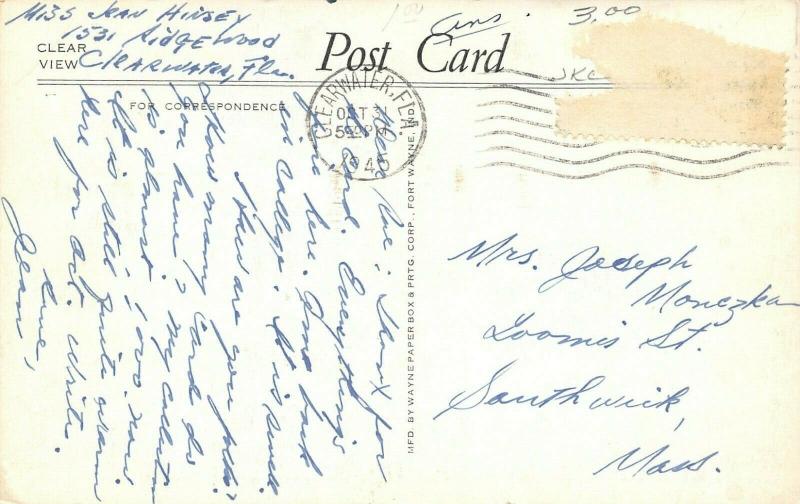 Miss Jean Hinsey
1531 Ridgewood
Clearwater, Fla.
CLEAR
VIEW
Post Card
Ans.
3.00
1.00
JKC
FOR CORRESPONDENCE
CLEARWATER, FLA
OCT 31
5 PM
194
Dear : Thanx for
the card. Everything's
fine here. Am back
in college. It is
How are you folks?
How many cards do
you have? My collection
is almost 1000 now.
It is still quite warm
here for Oct. Write.
Love,
Jean
MFD. BY WAYNE PAPER BOX & PRTG. CORP., FORT WAYNE, IND.
Mrs. Joseph
Monczka
Loomis St.
Southwick,
Mass.